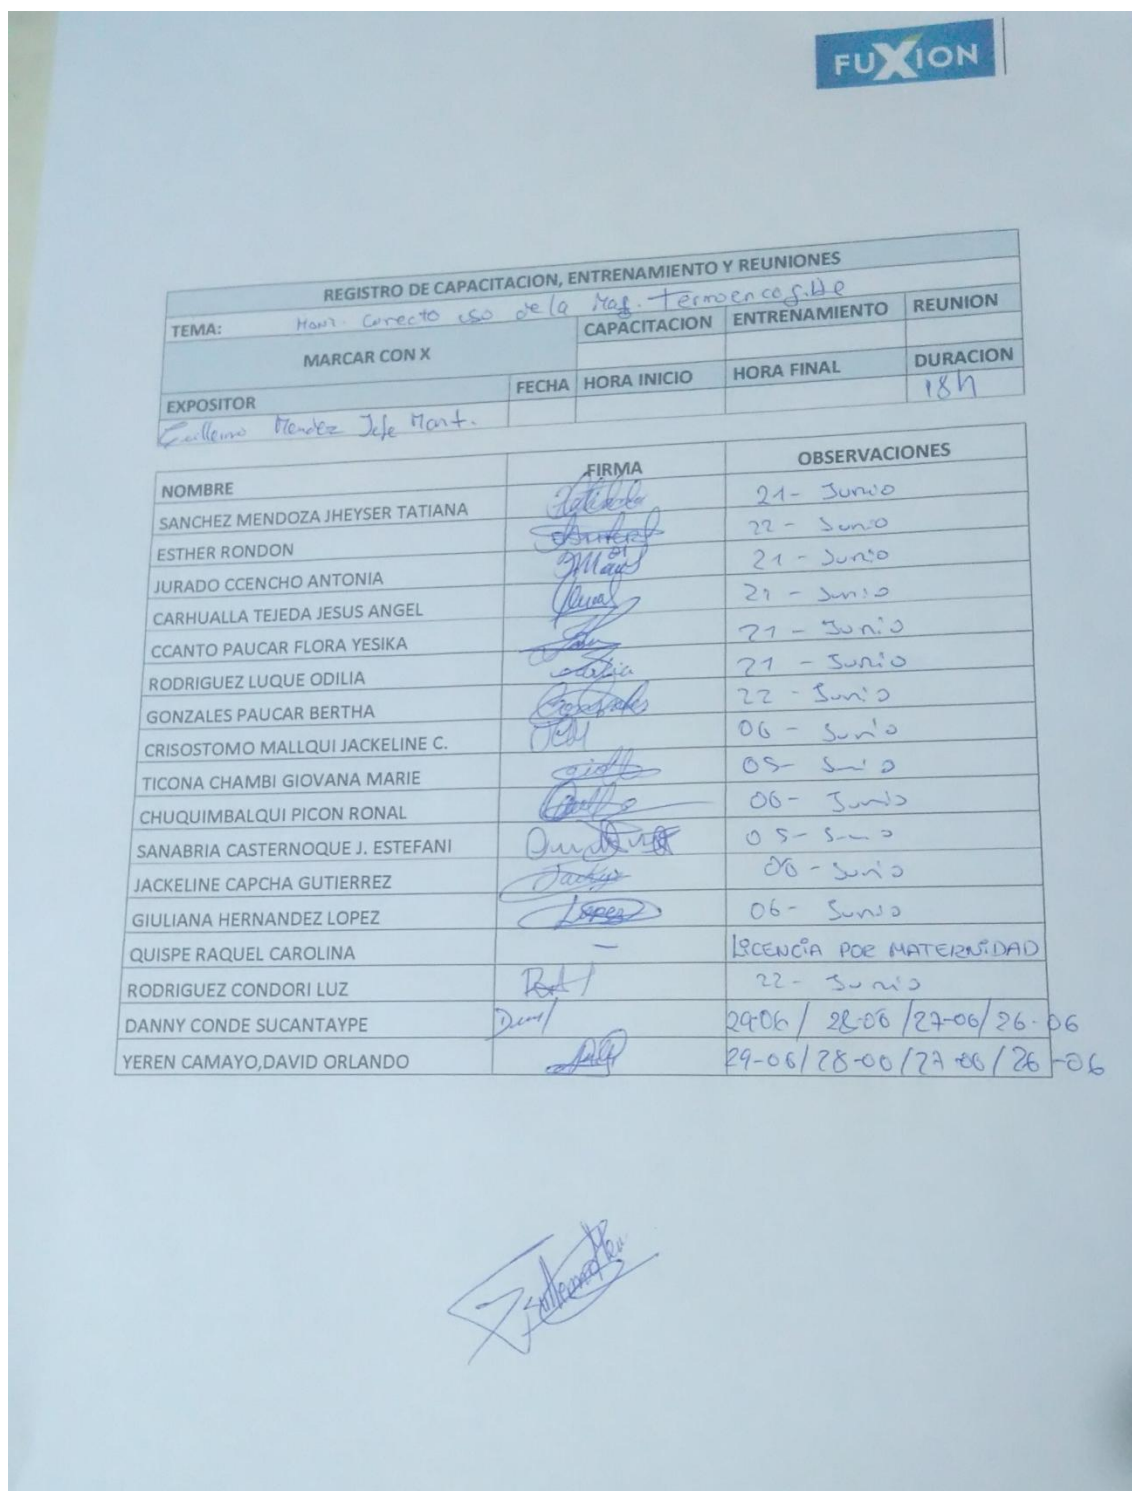 FUXION
REGISTRO DE CAPACITACION, ENTRENAMIENTO Y REUNIONES
TEMA: Correcto uso de la Maq. Termoencogible
MARCAR CON X CAPACITACION ENTRENAMIENTO REUNION
EXPOSITOR FECHA HORA INICIO HORA FINAL DURACION
Guillermo Mendez Jefe Mant. 18h
NOMBRE FIRMA OBSERVACIONES
SANCHEZ MENDOZA JHEYSER TATIANA 21- Junio
ESTHER RONDON 22- Junio
JURADO CCENCHO ANTONIA 21- Junio
CARHUALLA TEJEDA JESUS ANGEL 21 - Junio
CCANTO PAUCAR FLORA YESIKA 21 - Junio
RODRIGUEZ LUQUE ODILIA 21 - Junio
GONZALES PAUCAR BERTHA 22 - Junio
CRISOSTOMO MALLQUI JACKELINE C. 06 - Junio
TICONA CHAMBI GIOVANA MARIE 05- Junio
CHUQUIMBALQUI PICON RONAL 06- Junio
SANABRIA CASTERNOQUE J. ESTEFANI 05- Junio
JACKELINE CAPCHA GUTIERREZ Jackye 06 - Junio
GIULIANA HERNANDEZ LOPEZ Lopez 06- Junio
QUISPE RAQUEL CAROLINA — LICENCIA POR MATERNIDAD
RODRIGUEZ CONDORI LUZ 22- Junio
DANNY CONDE SUCANTAYPE 29-06/ 28-06 /27-06/ 26-06
YEREN CAMAYO,DAVID ORLANDO 29-06/28-06/27-06/26-06